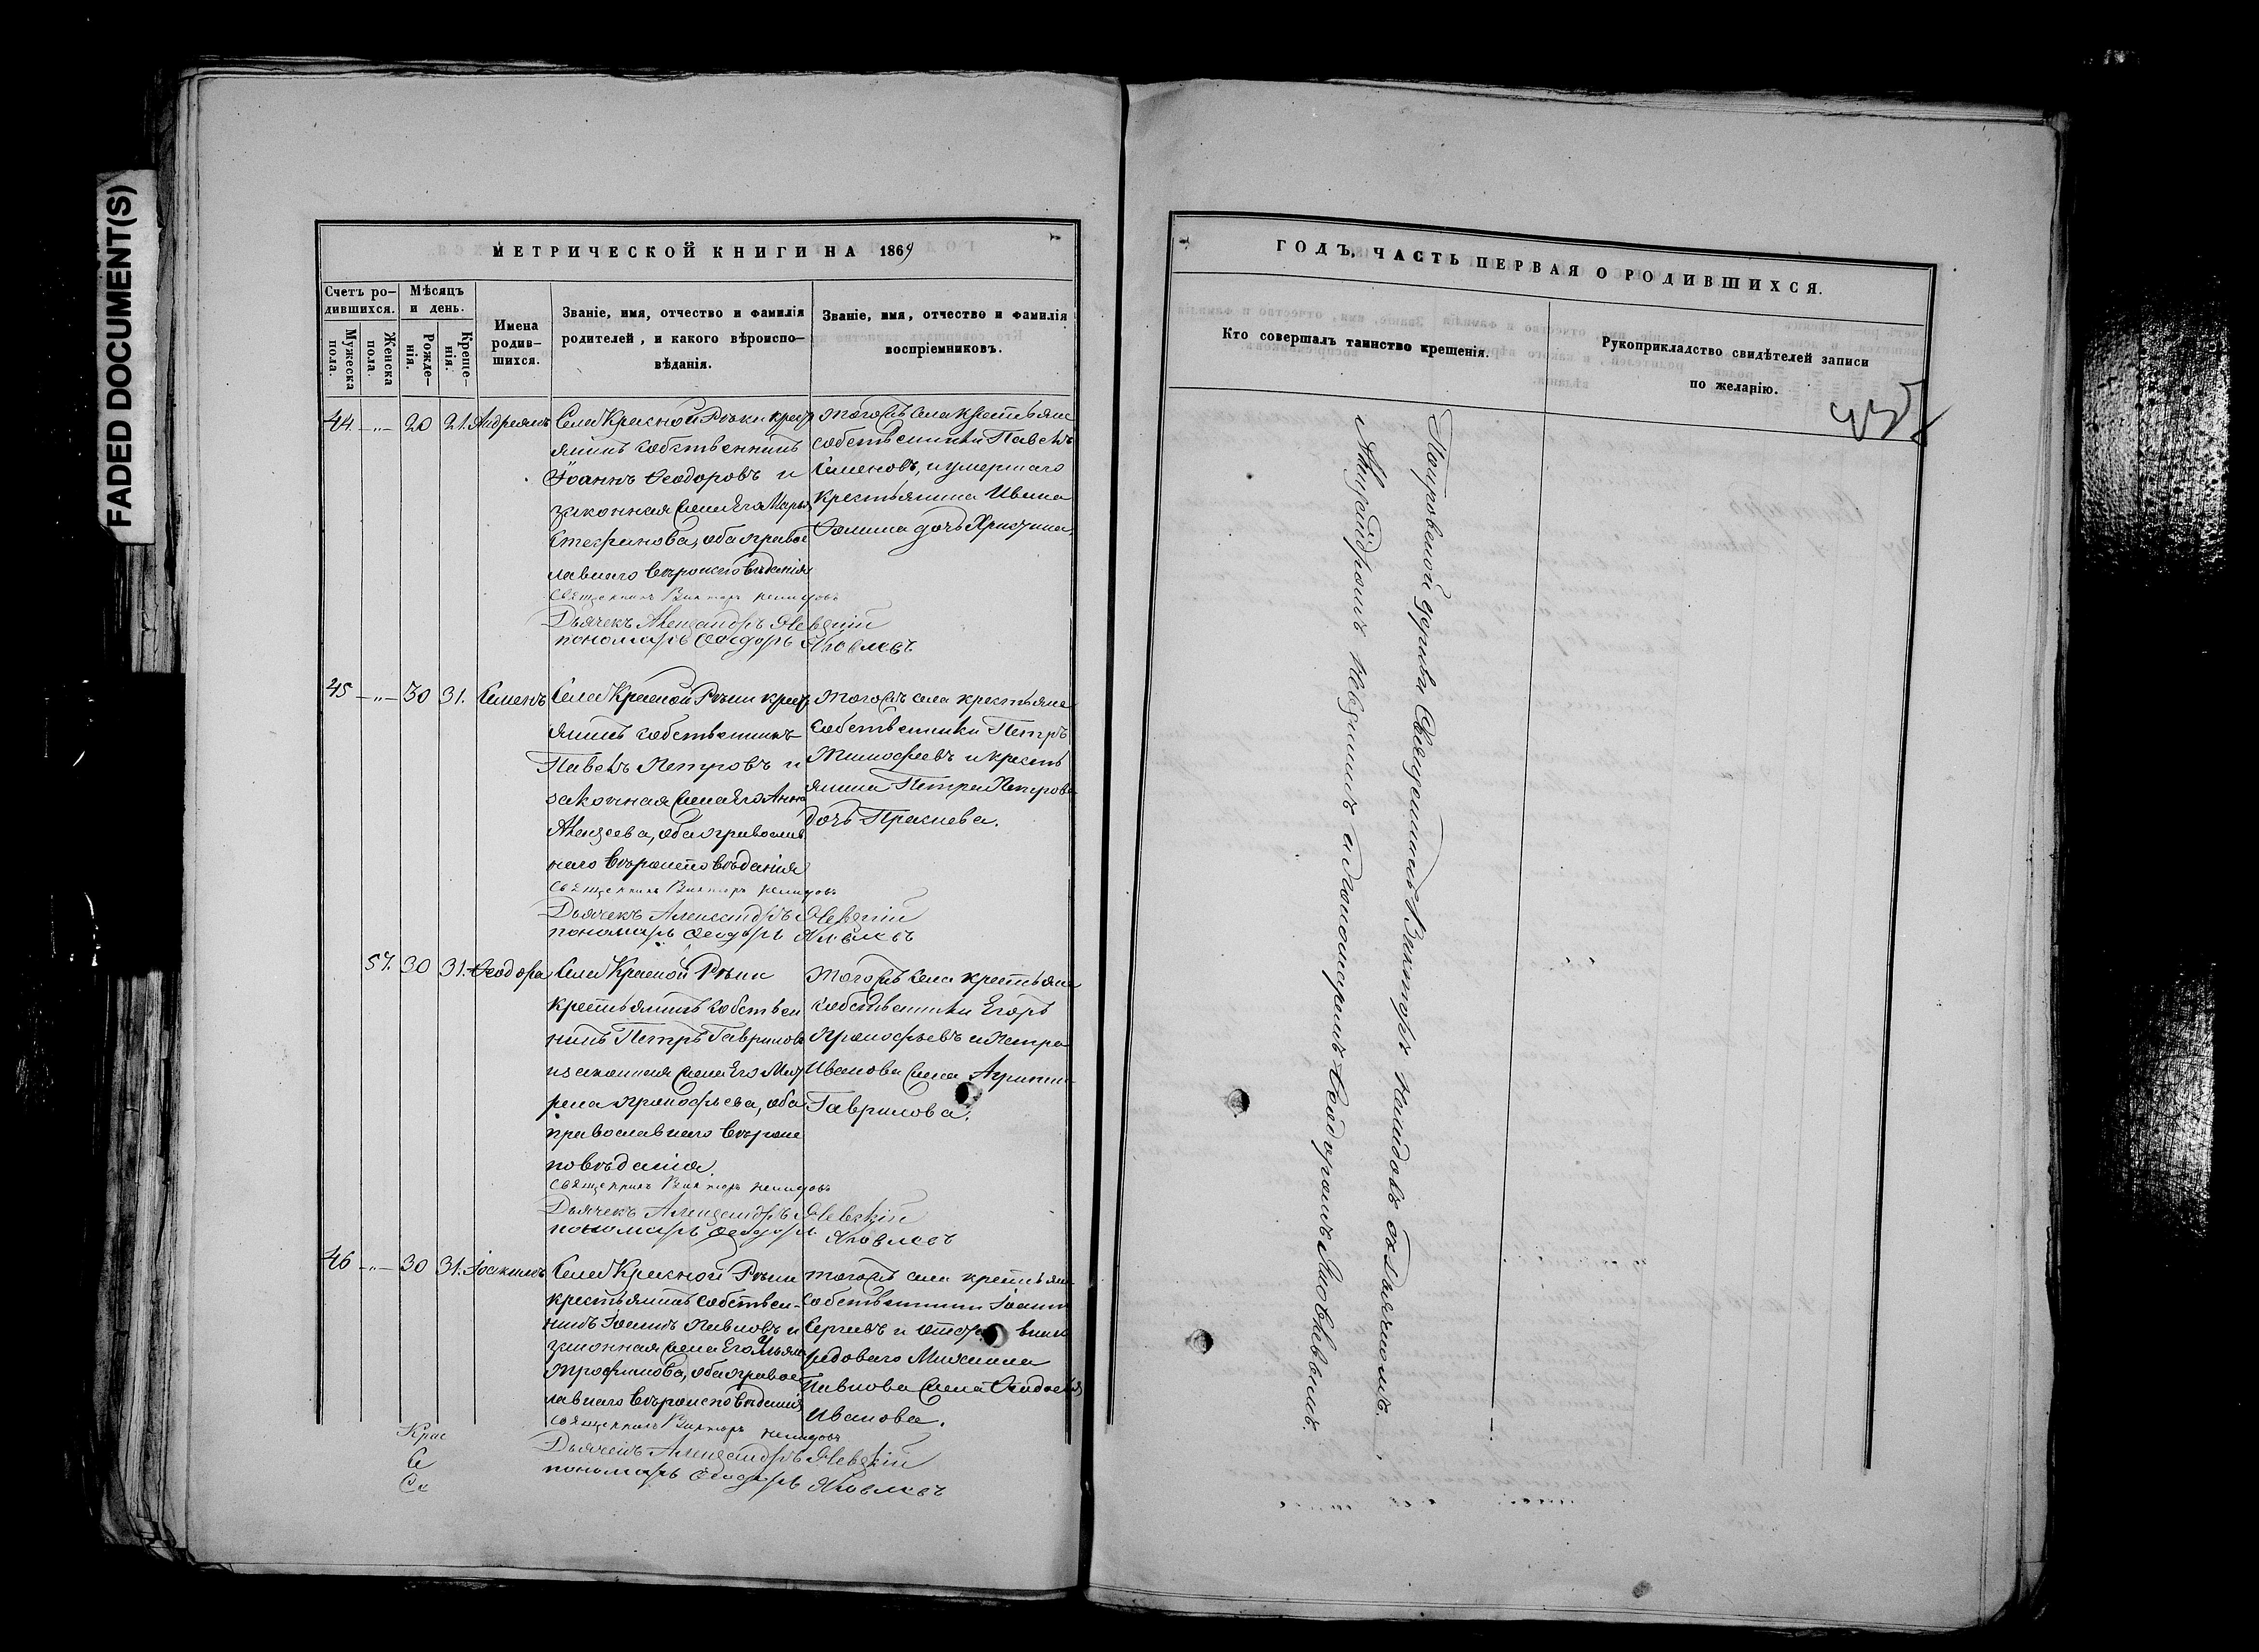 FADED DOCUMENT(S)
МЕТРИЧЕСКОЙ КНИГИ НА 1869
Счетъ ро-
дившихся.
Мужеска
пола.
Женска
пола.
Мѣсяцъ
и день.
Рожде-
нія.
Креще-
нія.
Имена
родив-
шихся.
Званіе, имя, отчество и фамилія
родителей, и какого вѣроиспо-
вѣданія.
Званіе, имя, отчество и фамилія
воспріемниковъ.
44. —„— 20 21. Андреянъ
Села Красной Рѣки крест
янинъ собственникъ
Іоаннъ Ѳеодоровъ и
законная жена Его Марья
Стефанова, оба право
славнаго вѣроисповѣданія
Священникъ Викторъ
Дьячекъ Александръ Невскій
пономарь Ѳеодоръ Яковлевъ
Тогожъ села крестьяне
собственники Павелъ
Семеновъ, и умершаго
крестьянина Ивана
дочь Христина.
45 —„— 30 31. Семенъ
Села Красной Рѣки крест
янинъ собственникъ
Павелъ Петровъ и
законная жена Его Анна
Алексеева, оба православ
наго вѣроисповѣданія
Священникъ Викторъ
Дьячекъ Александръ Невскій
пономарь Ѳеодоръ Яковлевъ
Тогожъ села крестьяне
собственники Петръ
Тимофеевъ и кресть
янина Петра Петрова
дочь Праскева.
57. 30 31. Ѳеодора
Села Красной Рѣки
крестьянинъ собствен
никъ Петръ Гавриловъ
и законная жена Его Мат
рена Прокофьева, оба
православнаго вѣроис
повѣданія.
Священникъ Викторъ
Дьячекъ Александръ Невскій
пономарь Ѳеодоръ Яковлевъ
Тогожъ села крестьяне
собственники Егоръ
Прокофьевъ и Петра
Иванова жена Агрипи-
Гаврилова.
46 —„— 30 31. Іоакимъ
Села Красной Рѣки
крестьянинъ собствен-
никъ Іоаннъ Павловъ и
законная жена Его Ульяна
Трофимова, оба право
славнаго вѣроисповѣданія
Священникъ Викторъ
Дьячекъ Александръ Невскій
пономарь Ѳеодоръ Яковлевъ
Тогожъ села крестьяне
собственники Іоаннъ
Сергеевъ и
рядоваго Максима
Павлова жена Ѳеодосья
Иванова.
Крас
Се
Св
ГОДЪ, ЧАСТЬ ПЕРВАЯ О РОДИВШИХСЯ.
Кто совершалъ таинство крещенія.
Рукоприкладство свидѣтелей записи
по желанію.
Покровской церкви Священникъ Викторъ съ Дьячкомъ
Александромъ Невскимъ и пономаремъ Ѳеодоромъ Яковлевымъ.